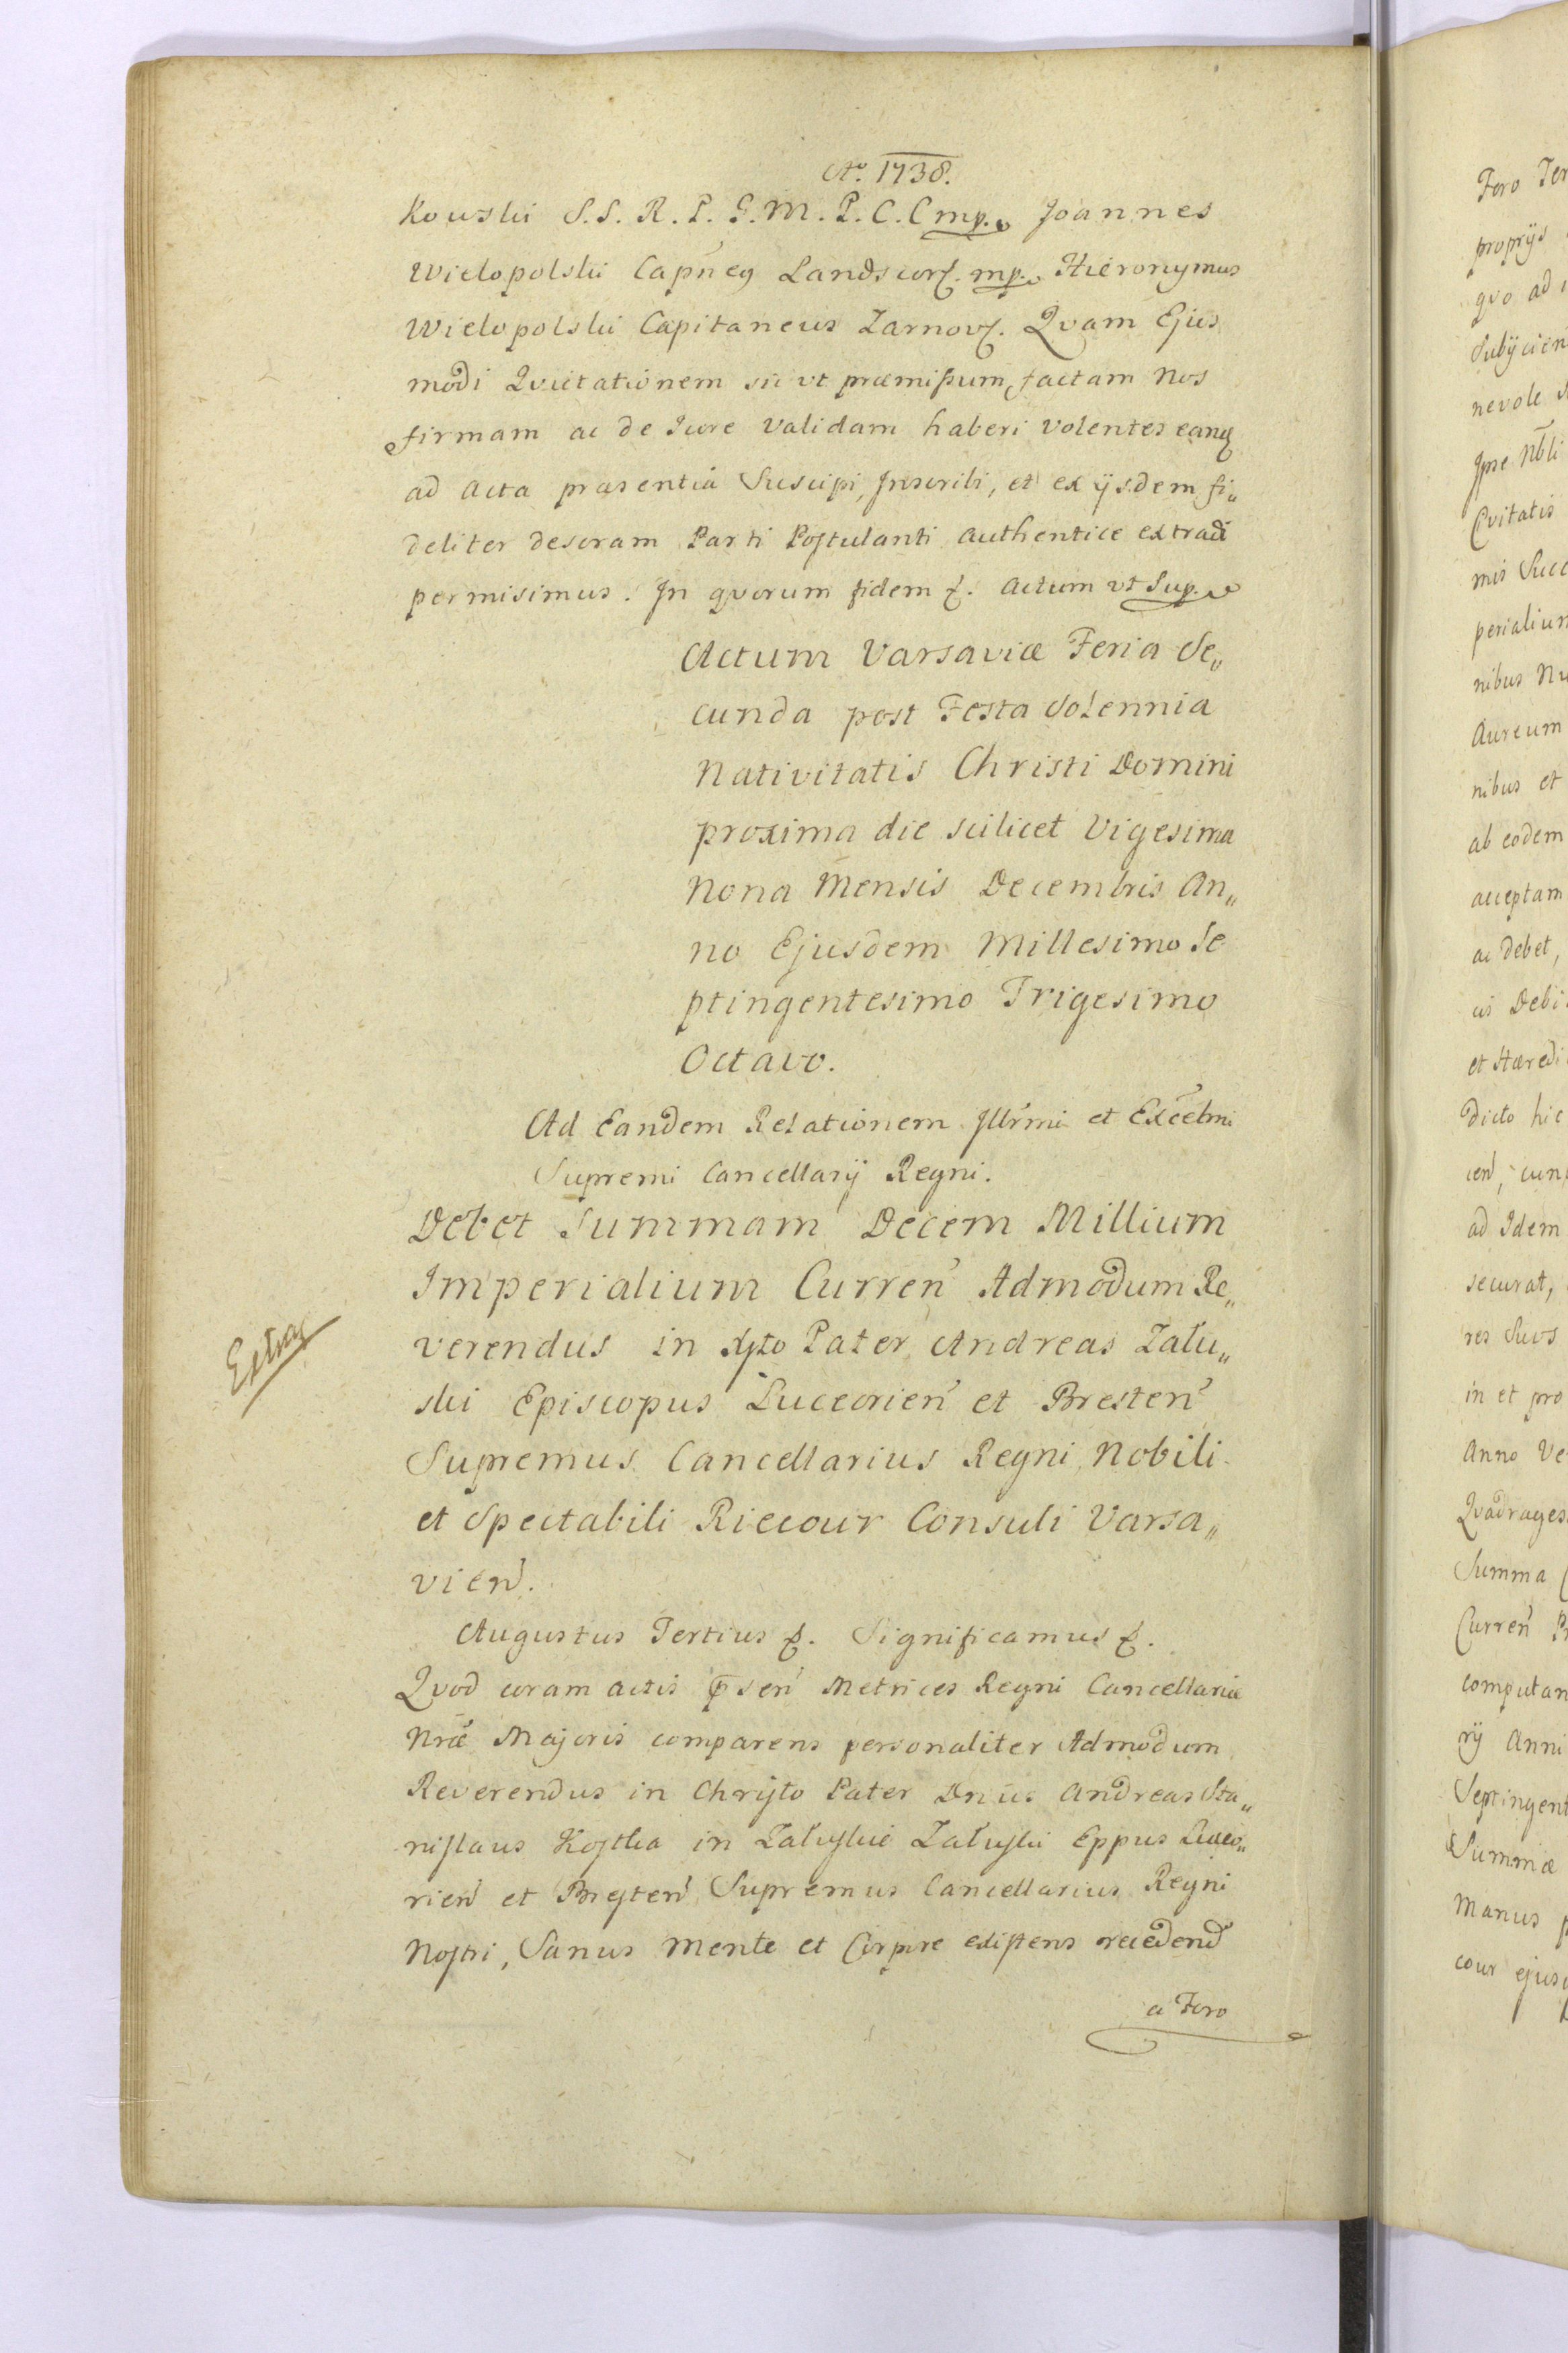 Aō. 1738.
kowski S.S. R. P. G. M. P. C. C mp. Joannes
Wielopolski Capn̄eq Landscor. mp. Hieronymus
Wielopolski Capitaneus Żarnov. Qvam Ejus
modi Qvietationem sic ut præmissum, factam Nos
firmam ac de Jure Validam haberi Volentes eamq
ad Acta præsentia Suscipi, Inscribi, et ex ijsdem fi„
deliter descram Parti Postulanti Authentice extradi
permisimus. In qvorum fidem &. Actum ut Sup.
Actum Varsaviæ Feria Se„
cunda post Festa Solennia
Nativitatis Christi Domini
proxima die scilicet Vigesima
Nona Mensis Decembris An„
no Ejusdem Millesimo Se
ptingentesimo Trigesimo
Octavo.
Ad Eandem Relationem Illr̄mi et Excēlmi
Supremi Cancellarij Regni.
Debet Summam Decem Millium
Imperialium Curren̄ Admodum Re„
verendus in Xpto Pater Andreas Zału„
ski Episcopus Luceorien̄ et Bresten̄
Supremus Cancellarius Regni Nobili
et Spectabili Riecour Consuli Varsa„
vien̄.
Extrac
Augustus Tertius &. Significamus &.
Qvod coram actis p̄sen̄ Metrices Regni Cancellariæ
Nr̄æ Majoris comparens personaliter Admodum
Reverendus in Christo Pater Dnūs Andreas Sta„
nislaus Kostka in Załuskie Załuski Eppus Luceo„
rien̄ et Bresten̄ Supremus Cancellarius Regni
Nostri, Sanus Mente et Corpore existens recedend̄
a Foro
Foro Ter
proprijs
qvo ad
Subijcien
nevole
Ipse Nbl̄i
Cvitatis
mis Succ
perialium
nibus Nu
Aureum
nibus et
ab eodem
acceptam
ac debet,
us Debi
et Hæredi
dicto hic
cen̄, cun
ad Idem
securat,
res Suos
in et pro
Anno Ve
Qvadrages
Summa
Curren̄ P
computan
rij Anni
Septingent
Summæ
Manus p
cour ejusd